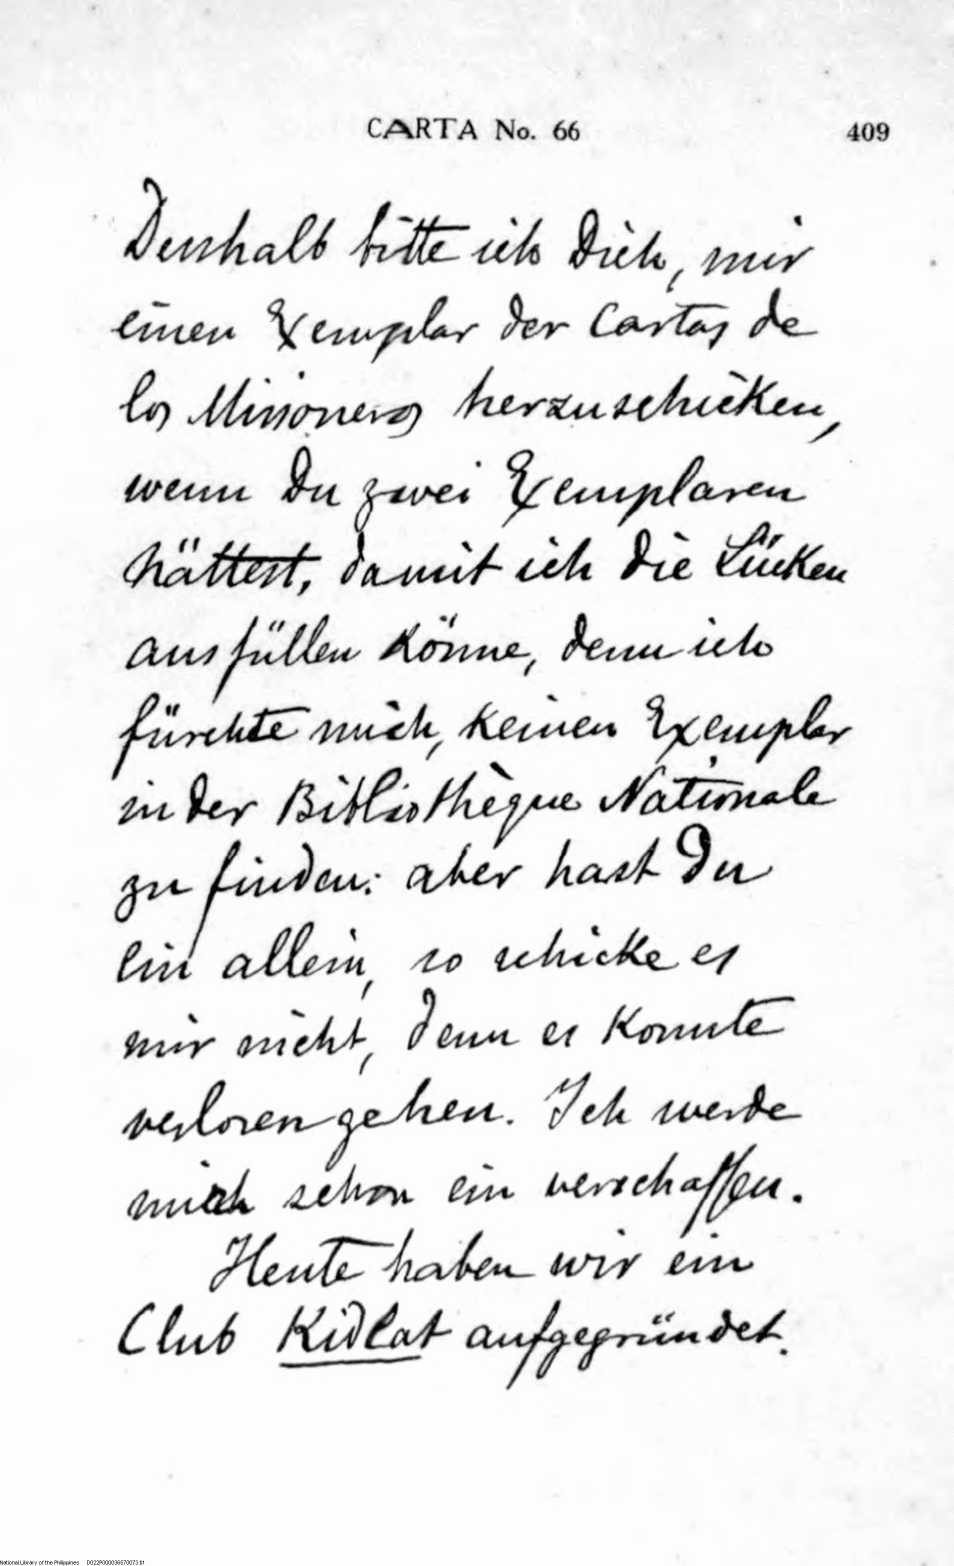 CARTA No. 66 409
Desshalb bitte ich Dich, mir
einen Exemplar der Cartas de
los Missioneros herzuschicken,
wenn Du zwei Exemplaren
hättest, damit ich die Lücken
ausfüllen könne, denn ich
fürchte mich, keinen Exemplar
in der Bibliothèque Nationale
zu finden: aber hast Du
ein allein, so schicke es
mir nicht, denn es konnte
verloren gehen. Ich werde
mich schon ein verschaffen.
Heute haben wir ein
Club Kidlat aufgegründet.
National Library of the Philippines